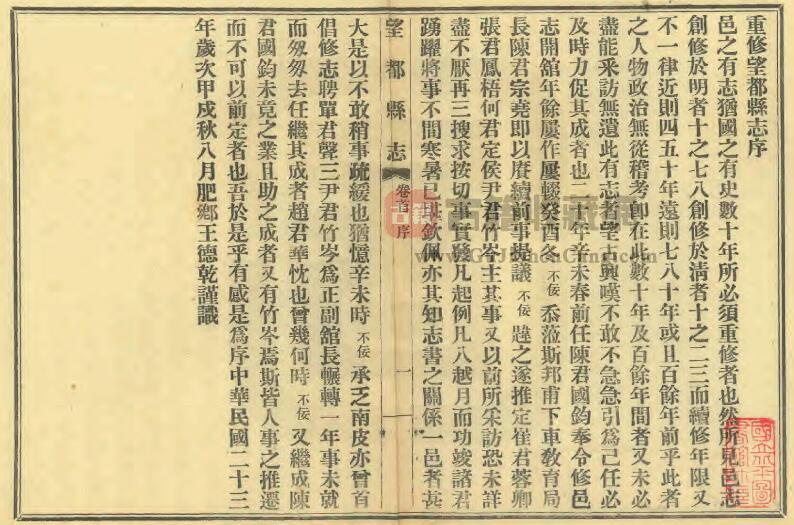 重修望都縣志序
邑之有志猶國之有史數十年所必須重修者也然所見邑志
創修於明者十之七八創修於清者十之二三而續修年限又
不一律近則四五十年遠則七八十年或且百餘年前乎此者
之人物政治無從稽考卽在此數十年及百餘年間者又未必
盡能采訪無遺此有志者望古興嘆不敢不急急引爲己任必
及時力促其成者也二十年辛未春前任陳君國鈞奉令修邑
志開舘年餘屢作屢輟癸酉冬不佞忝蒞斯邦甫下車敎育局
長陳君宗堯即以賡續前事提議不佞韙之遂推定崔君蓉卿
張君鳳梧何君定侯尹君竹岑主其事又以前所采訪恐未詳
盡不厭再三搜求按切事實發凡起例凡八越月而功竣諸君
踴躍將事不間寒暑已堪欽佩亦其知志書之關係一邑者甚
望都縣志 卷首 序 一
大是以不敢稍事疏緩也猶憶辛未時不佞承乏南皮亦曾首
倡修志聘單君聲三尹君竹岑爲正副舘長輾轉一年事未就
而匆匆去任繼其成者趙君華忱也曾幾何時不佞又繼成陳
君國鈞未竟之業且助之成者又有竹岑焉斯皆人事之推遷
而不可以前定者也吾於是乎有感是爲序中華民國二十三
年歲次甲戌秋八月肥鄉王德乾謹識